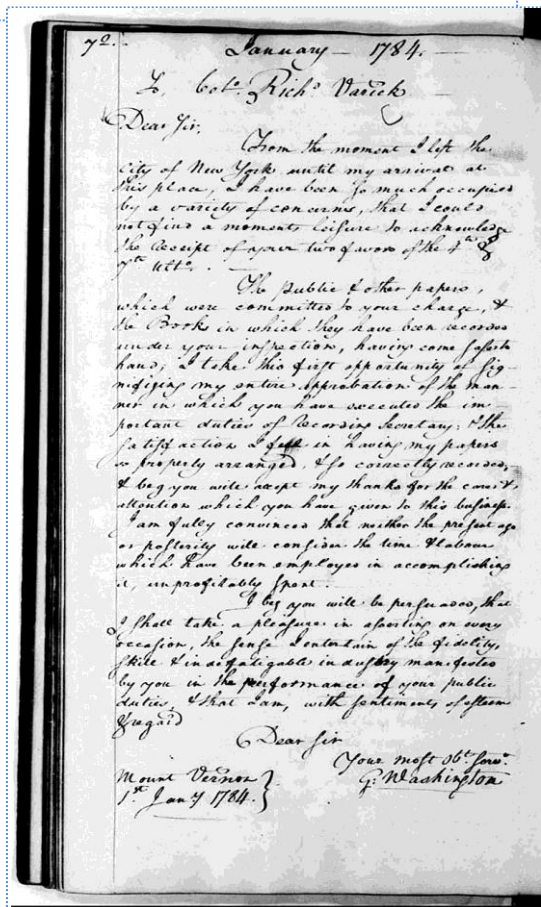 72.
January — 1784. —
To Colo. Richd. Varick
Dear Sir,
From the moment I left the
city of New York until my arrival at
this place, I have been so much occupied
by a variety of concerns, that I could
not find a moments leisure to acknowledge
the receipt of your two favors of the 4th &
7th Ulto. —
The public & other papers,
which were committed to your charge, &
the Books in which they have been recorded
under your inspection, having come safe to
hand, I take this first opportunity of sig-
nifying my entire approbation of the man-
ner in which you have executed the im-
portant duties of Recording Secretary; & the
satisfaction I feel in having my papers
so properly arranged, & so correctly recorded,
& beg you will accept my thanks for the care &
attention which you have given to this business.
I am fully convinced that neither the present age
or posterity will consider the time & labour
which have been employed in accomplishing
it, unprofitably spent.
I beg you will be persuaded, that
I shall take a pleasure in asserting on every
occasion, the sense I entertain of the fidelity,
skill & indefatigable industry manifested
by you in the performance of your public
duties, & that I am, with sentiments of esteem
& regard
Dear Sir
Your most Obt. Servt.
G: Washington
Mount Vernon
1st Jany 1784.